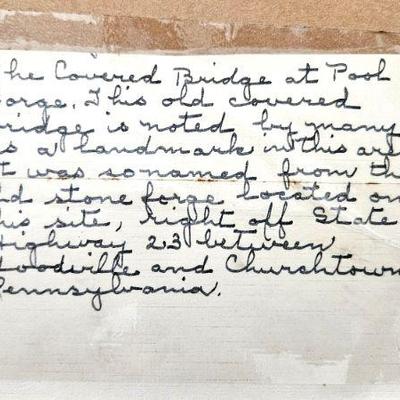 he Covered Bridge at Pool
orge. This old covered
ridge is noted by many
s a landmark in this are
t was sonamed from th
ld stone forge located on
his site, right off State
Highway 23 between
Goodville and Churchtown
Pennsylvania.